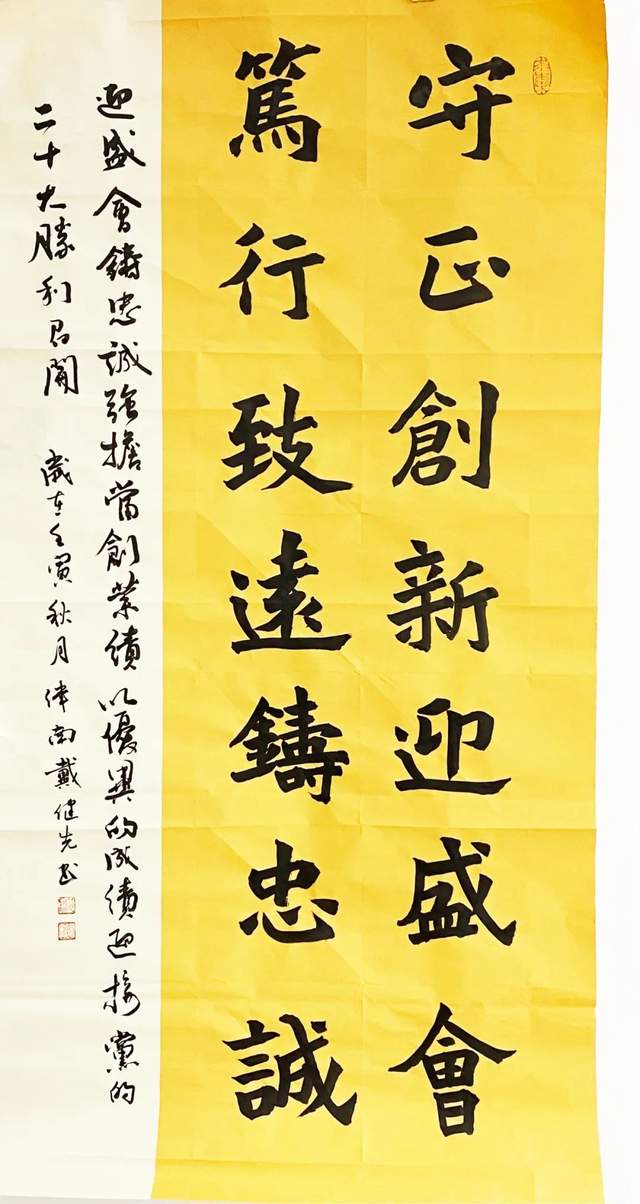 守正創新迎盛會
篤行致遠鑄忠誠
迎盛會鑄忠誠強擔當創業績以優異的成績迎接黨的
二十大勝利召開 歲在壬寅秋月 津南戴健先書